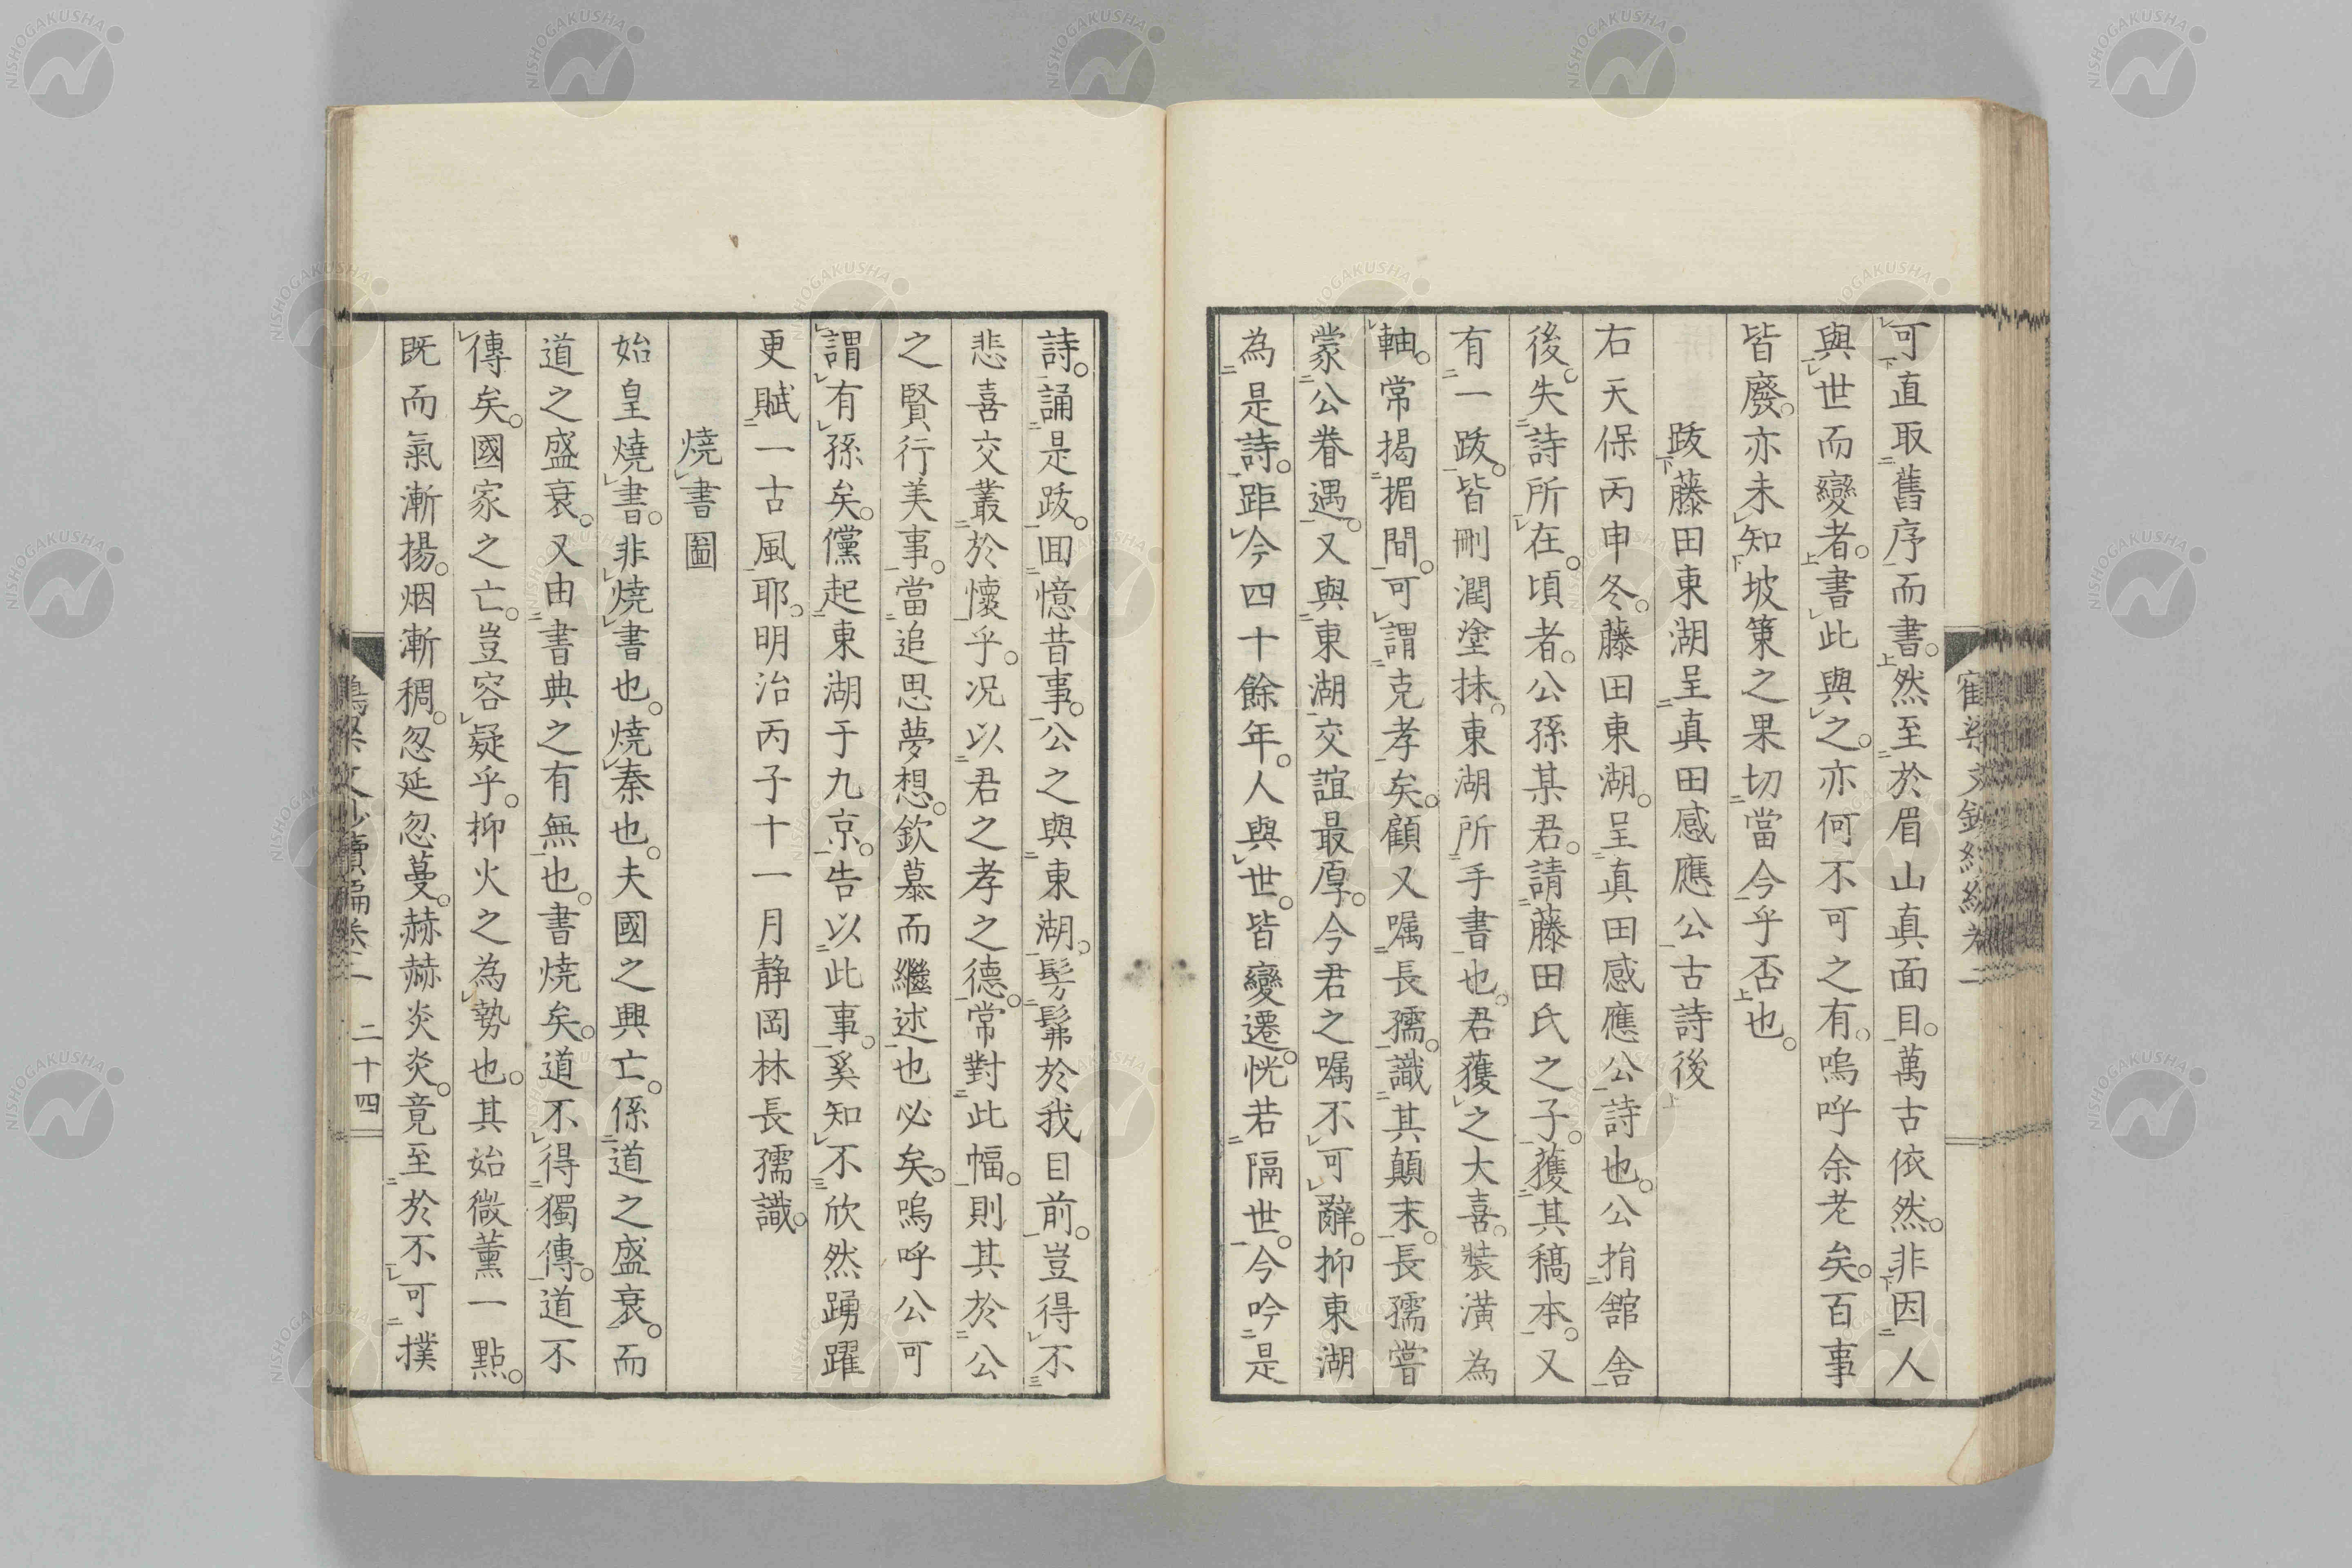 可直取舊序而書。然至於眉山真面目。萬古依然。非因人
與世而變者。書此與之。亦何不可之有。嗚呼余老矣。百事
皆廢。亦未知坡策之果切當今乎否也。
跋藤田東湖呈真田感應公古詩後
右天保丙申冬。藤田東湖。呈真田感應公詩也。公捐舘舍
後。失詩所在。頃者。公孫某君。請藤田氏之子。獲其稿本。又
有一跋。皆刪潤塗抹。東湖所手書也。君獲之大喜。裝潢為
軸。常揭楣間。可謂克孝矣。顧又嘱長孺。識其顛末。長孺嘗
蒙公眷遇。又與東湖交誼最厚。今君之嘱不可辭。抑東湖
為是詩。距今四十餘年。人與世。皆變遷。恍若隔世。今吟是
詩。誦是跋。回憶昔事。公之與東湖。髣髴於我目前。豈得不
悲喜交叢於懷乎。况以君之孝之德。常對此幅。則其於公
之賢行美事。當追思夢想。欽慕而繼述也必矣。嗚呼公可
謂有孫矣。儻起東湖于九京。告以此事。奚知不欣然踴躍
更賦一古風耶。明治丙子十一月靜岡林長孺識。
燒書圖
始皇燒書。非燒書也。燒秦也。夫國之興亡。係道之盛衰。而
道之盛衰。又由書典之有無也。書燒矣。道不得獨傳。道不
傳矣。國家之亡。豈容疑乎。抑火之為勢也。其始微薰一點。
既而氣漸揚。烟漸稠。忽延忽蔓。赫赫炎炎。竟至於不可撲
二十四
NISHOGAKUSHA